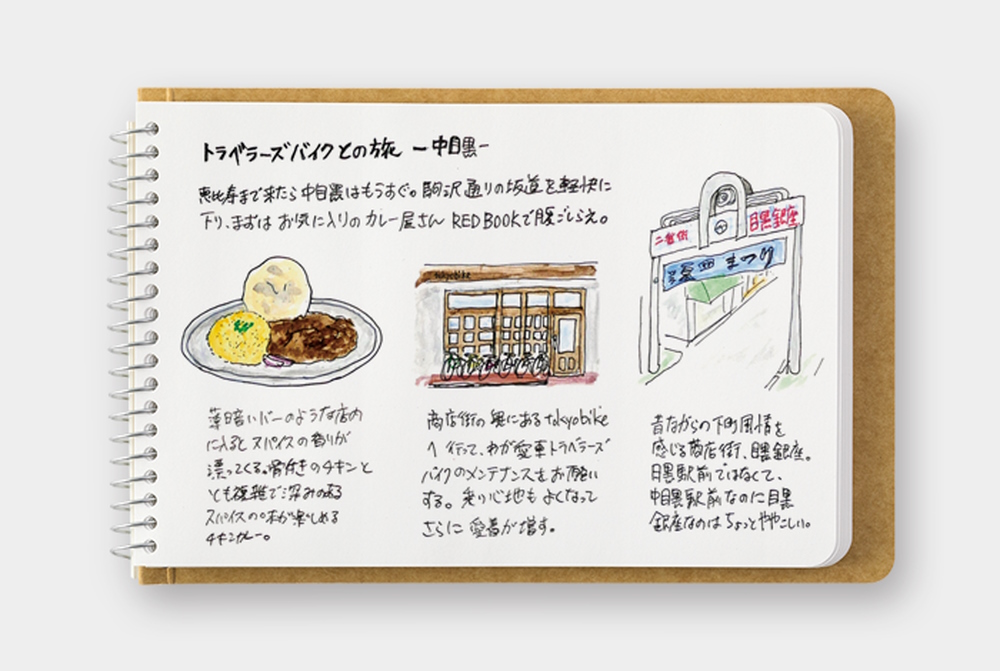 トラベラーズバイクとの旅 ー中目黒ー
恵比寿まで来たら中目黒はもうすぐ。駒沢通りの坂道を軽快に
下り、まずは お気に入りの カレー屋さん RED BOOKで腹ごしらえ。
tokyobike
二番街
目黒銀座
まつり
薄暗いバーのような店内
に入ると スパイスの香りが
漂ってくる。骨付きのチキンと
とも複雑で深みのある
スパイスの味が楽しめる
チキンカレー。
商店街の奥にある tokyobike
へ 行って、わが愛車トラベラーズ
バイクのメンテナンスをお願い
する。乗り心地も よくなって
さらに 愛着が増す。
昔ながらの下町風情を
感じる商店街、目黒銀座。
目黒駅前ではなくて、
中目黒駅前なのに目黒
銀座なのは ちょっとややこしい。